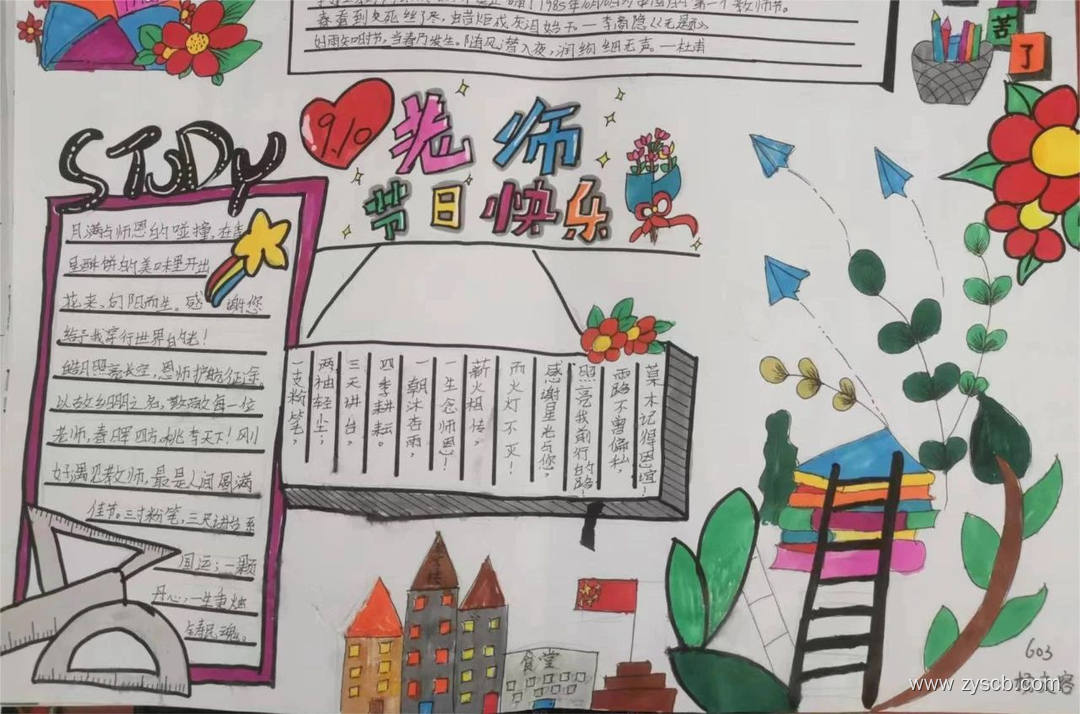 1985年10月10日为中国的第一个教师节。
春蚕到死丝方尽，蜡炬成灰泪始干。—李商隐《无题》
好雨知时节，当春乃发生。随风潜入夜，润物细无声。—杜甫
苦
了
9.10
老师
节日快乐
STUDY
月满与师恩的碰撞，在
里酥饼的美味里开出
花来、向阳而生。感谢您
给予我穿行世界的光！
皓月照亮长空，恩师护航征途，
以故乡明月之名，敬
每一位
老师，春日
四方，桃李天下！刚
好遇见教师，最是人间圆满
佳节。三寸粉笔，三尺讲台系
国运；一颗
丹心，一生秉烛
铸民魂。
草木记得恩谊！
雨路不曾偏私，
照亮我前行的路！
感谢星光与您，
而火灯不灭！
薪火相传，
一生念师恩！
一朝沐杏雨，
四季耕耘。
三天讲台，
两袖轻尘；
一支粉笔，
学校
食堂
603
www.zyscb.com